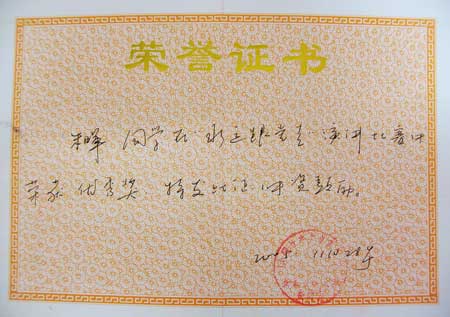 荣誉证书
朱晖 同学在"永远跟党走"演讲比赛中
荣获优秀奖，特发此证，以资鼓励。
2005.11月28日